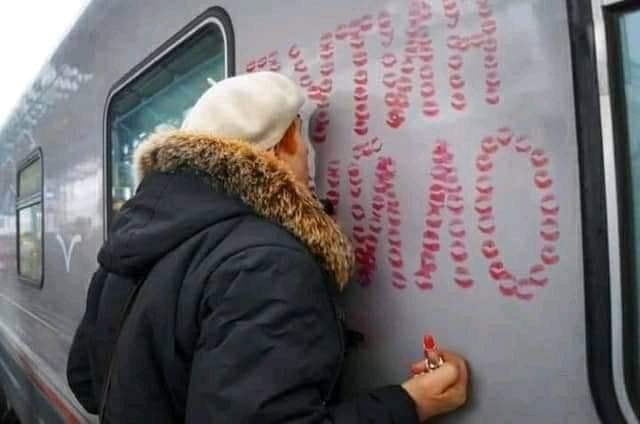 УТИН
ЙЛО